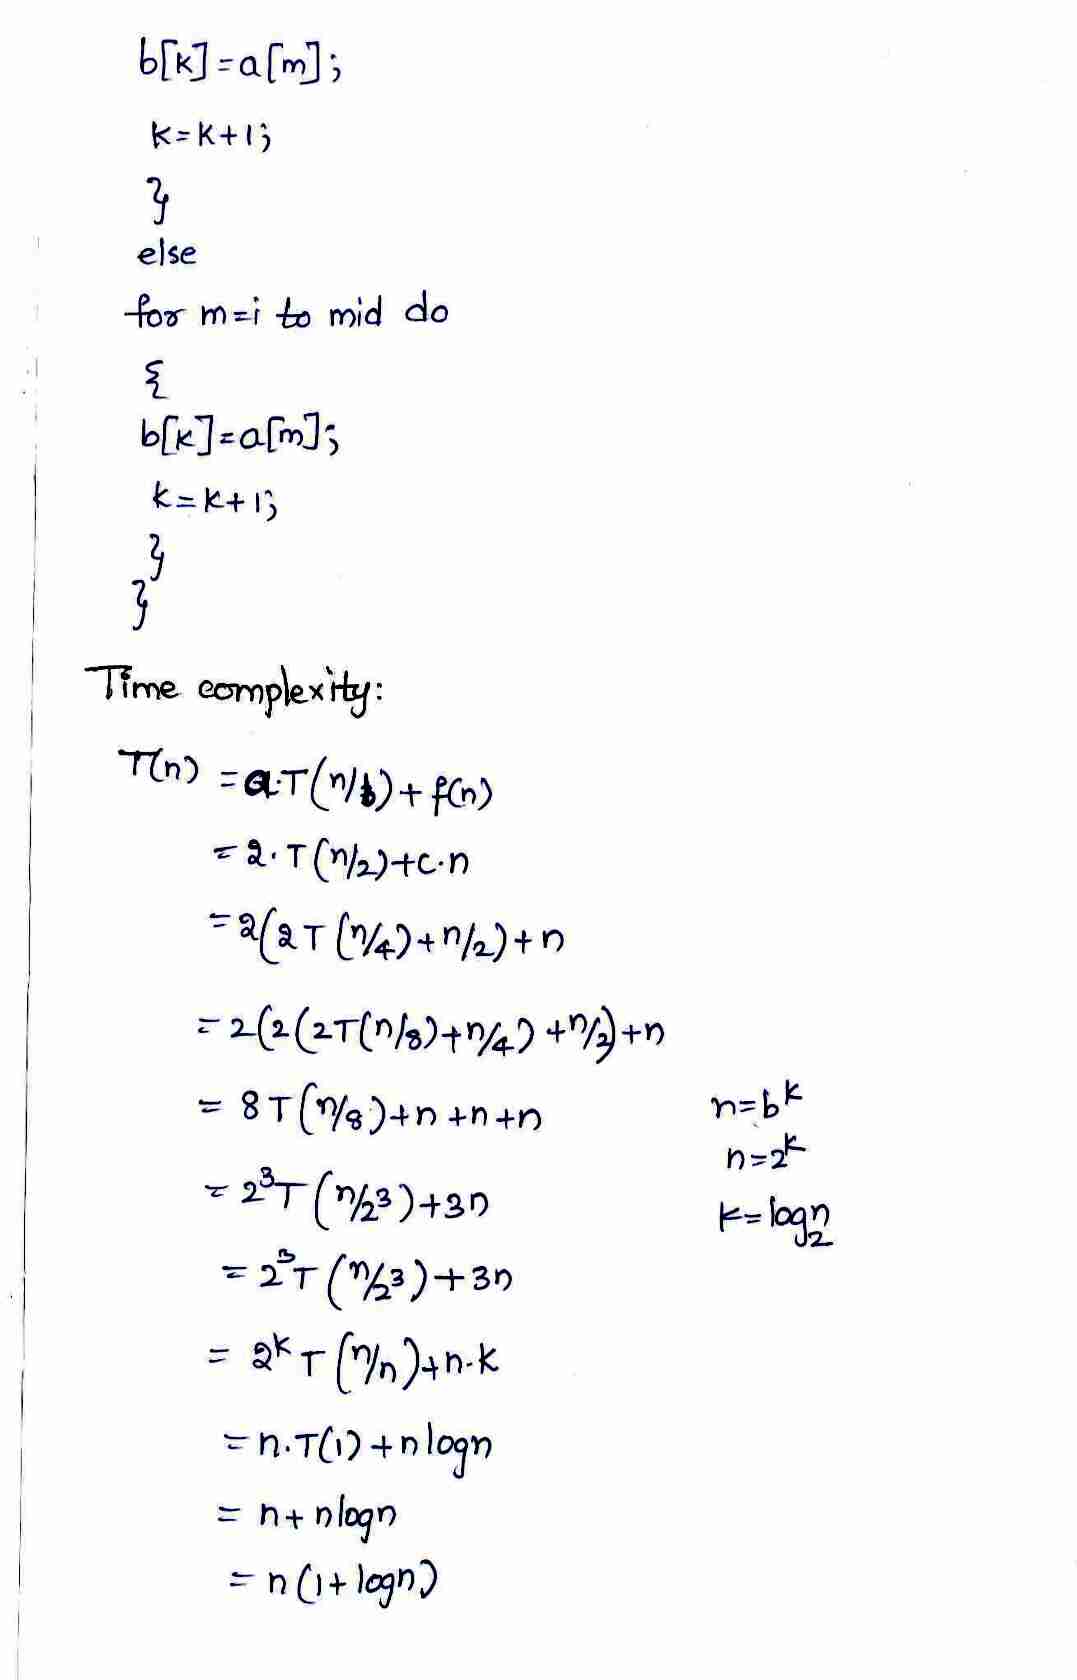 b[k]=a[m];
k=k+1;
}
else
for m=i to mid do
{
b[k]=a[m];
k=k+1;
}
}
Time complexity:
T(n) =a.T(n/b)+f(n)
=2.T(n/2)+c.n
=2(2T(n/4)+n/2)+n
=2(2(2T(n/8)+n/4)+n/2)+n
= 8T(n/8)+n+n+n
= 2³T(n/2³)+3n
= 2³T(n/2³)+3n
= 2ᵏT(n/n)+n.k
=n.T(1)+nlogn
= n+nlogn
= n(1+logn)
n=bᵏ
n=2ᵏ
k=log₂n